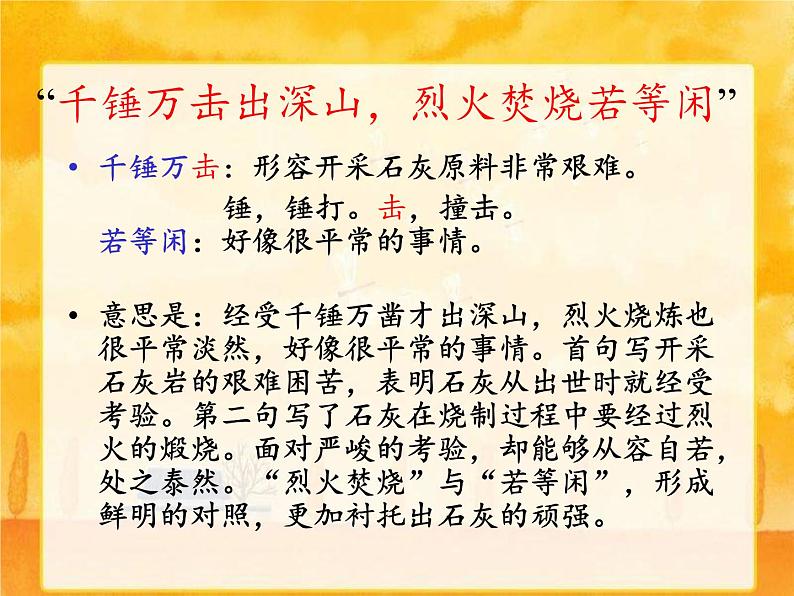 “千锤万击出深山，烈火焚烧若等闲”
• 千锤万击：形容开采石灰原料非常艰难。
锤，锤打。击，撞击。
若等闲：好像很平常的事情。
• 意思是：经受千锤万凿才出深山，烈火烧炼也
很平常淡然，好像很平常的事情。首句写开采
石灰岩的艰难困苦，表明石灰从出世时就经受
考验。第二句写了石灰在烧制过程中要经过烈
火的煅烧。面对严峻的考验，却能够从容自若，
处之泰然。“烈火焚烧”与“若等闲”，形成
鲜明的对照，更加衬托出石灰的顽强。